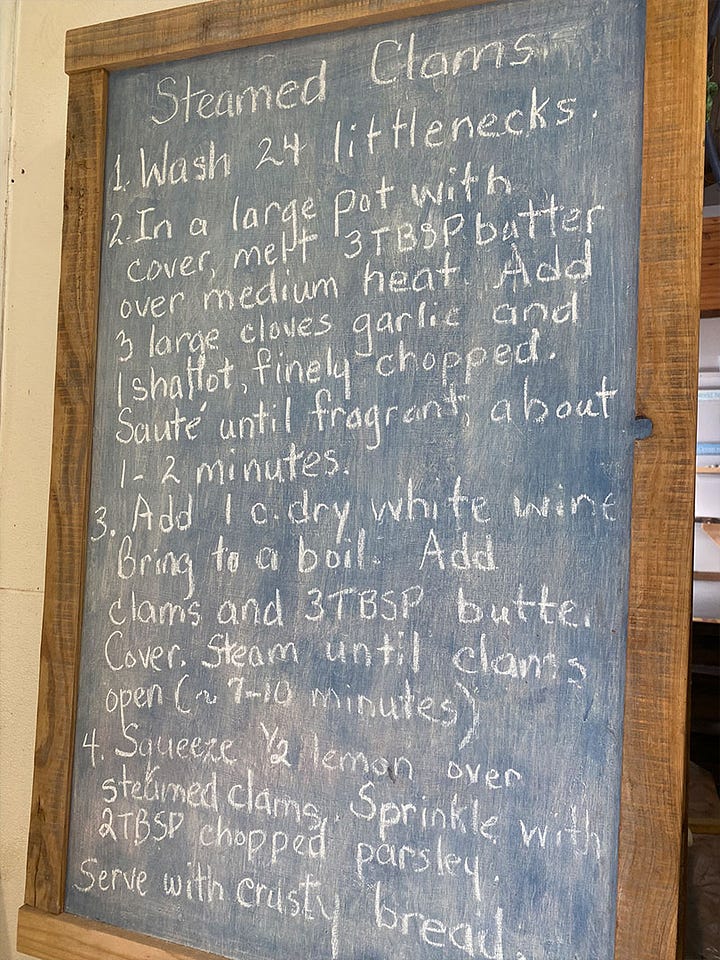 Steamed Clams
1. Wash 24 littlenecks.
2. In a large pot with
cover, melt 3TBSP butter
over medium heat. Add
3 large cloves garlic and
1 shallot, finely chopped.
Sauté until fragrant, about
1-2 minutes.
3. Add 1 c. dry white wine
Bring to a boil. Add
clams and 3TBSP butter
Cover. Steam until clams
open (~ 7-10 minutes)
4. Squeeze 1/2 lemon over
steamed clams. Sprinkle with
2TBSP chopped parsley.
Serve with crusty bread.